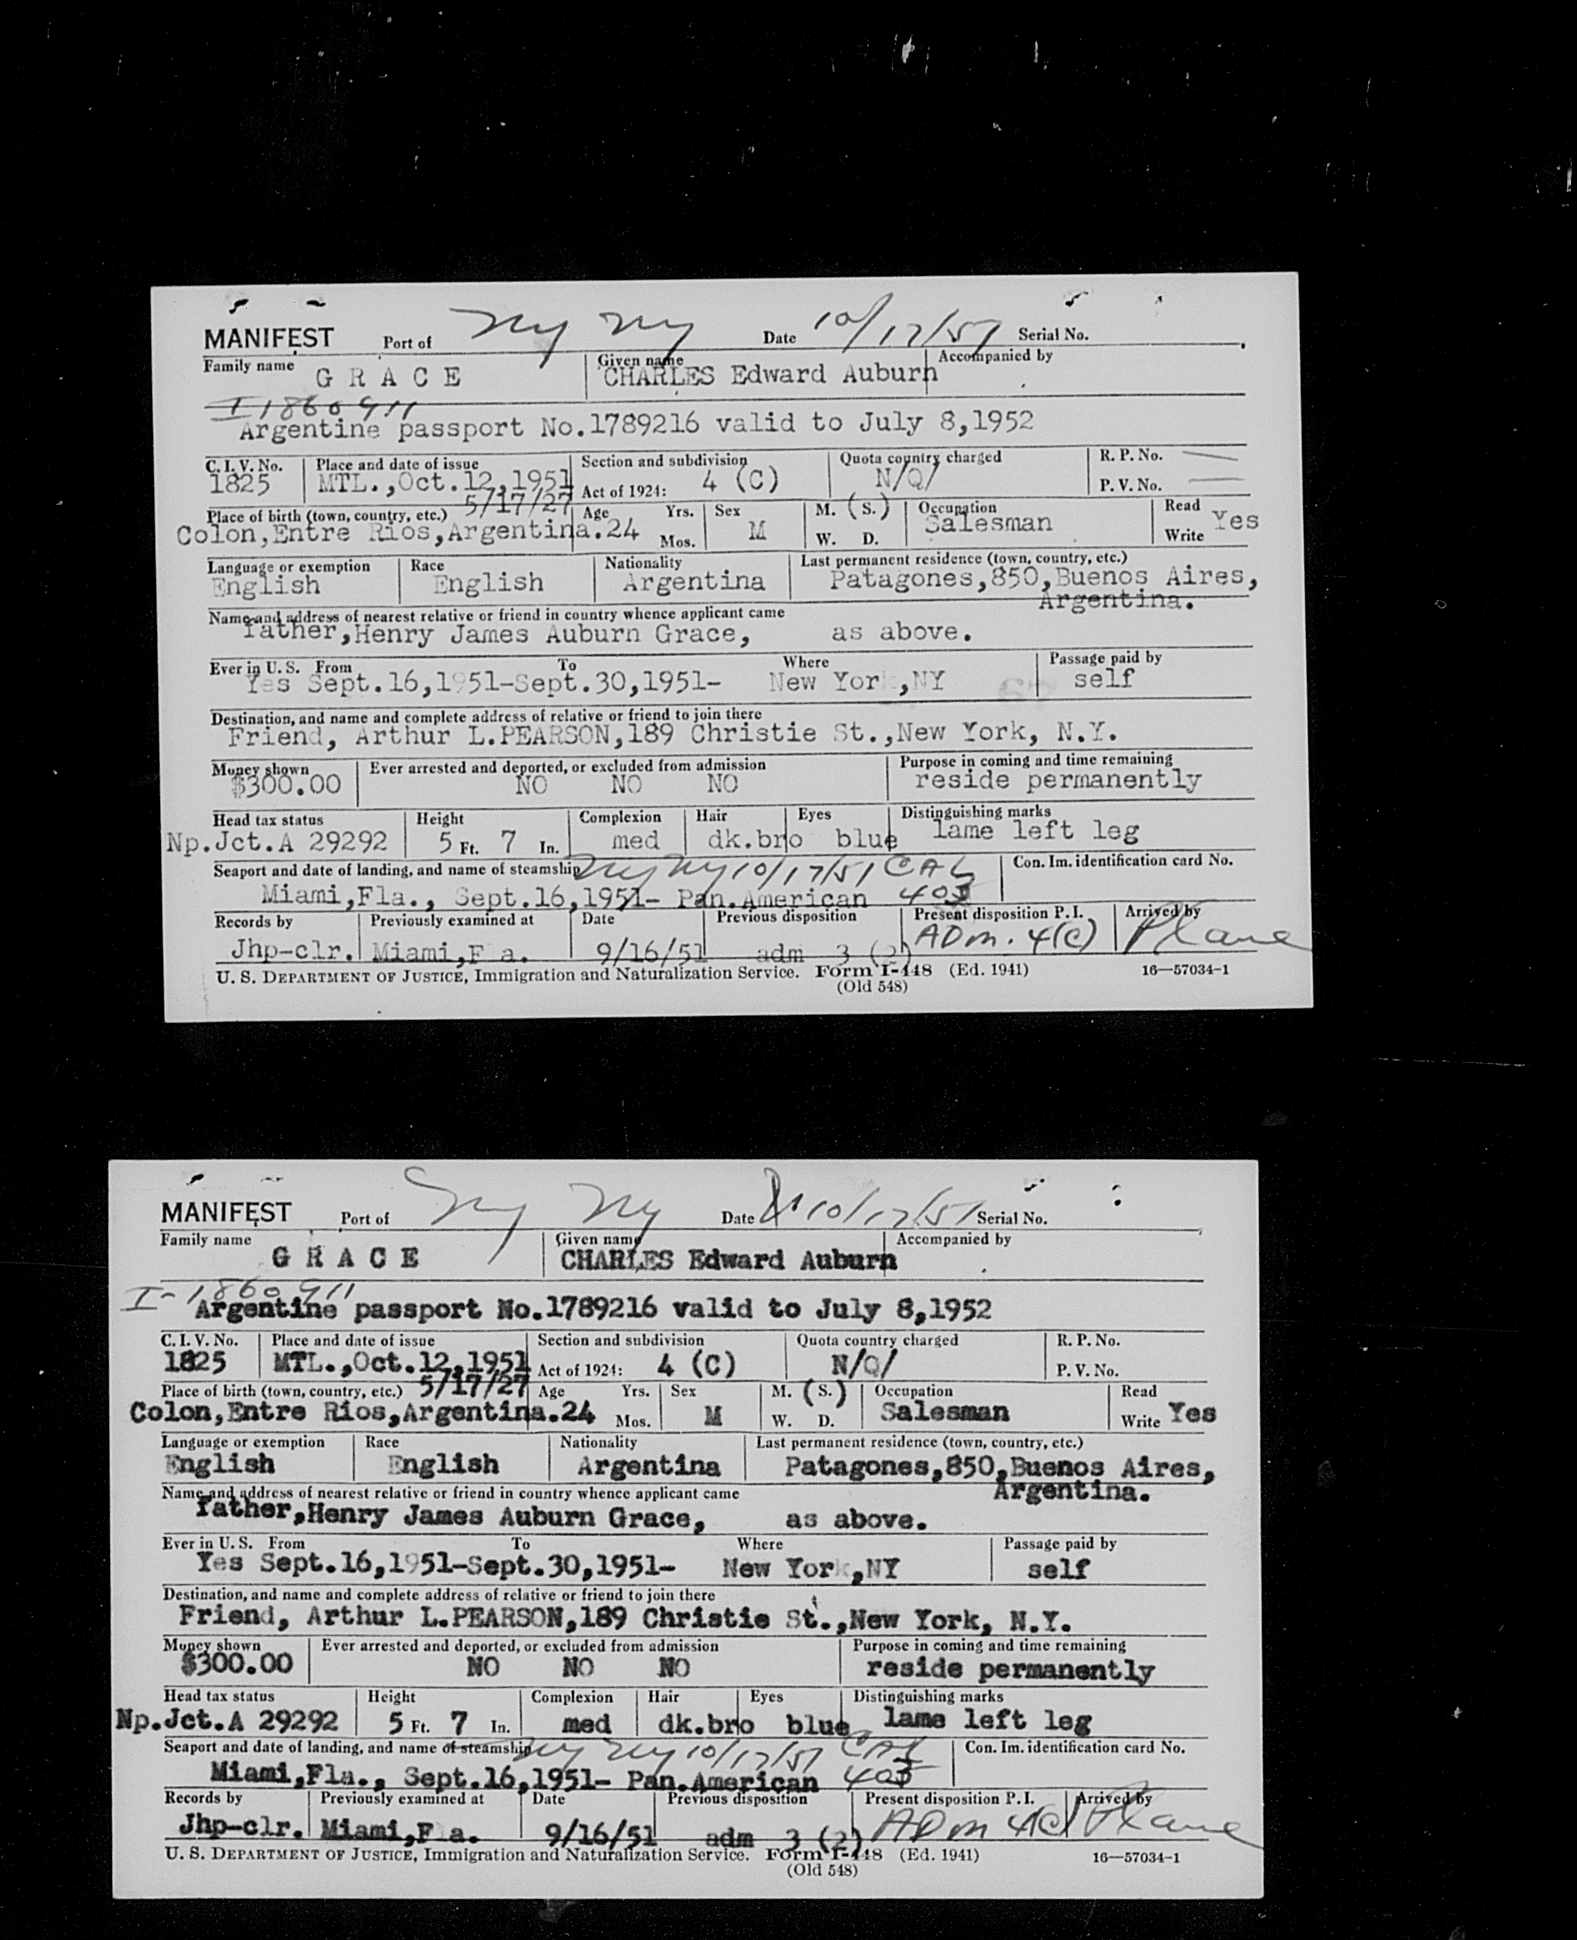 MANIFEST Port of NY NY Date 10/17/51 Serial No.
Family name G R A C E Given name CHARLES Edward Auburn Accompanied by
I 1860911
Argentine passport No.1789216 valid to July 8,1952
C. I. V. No. Place and date of issue Section and subdivision Quota country charged R. P. No.
1825 MTL.,Oct.12,1951 Act of 1924: 4 (C) N/Q/ P. V. No.
5/17/27
Place of birth (town, country, etc.) Age Yrs. Sex M. (S.) Occupation Read
Colon,Entre Rios,Argentina. 24 Mos. M W. D. Salesman Write Yes
Language or exemption Race Nationality Last permanent residence (town, country, etc.)
English English Argentina Patagones,850,Buenos Aires,
Argentina.
Name and address of nearest relative or friend in country whence applicant came
father,Henry James Auburn Grace, as above.
Ever in U. S. From To Where Passage paid by
Yes Sept.16,1951-Sept.30,1951- New York,NY self
Destination, and name and complete address of relative or friend to join there
Friend, Arthur L.PEARSON,189 Christie St.,New York, N.Y.
Money shown Ever arrested and deported, or excluded from admission Purpose in coming and time remaining
$300.00 NO NO NO reside permanently
Head tax status Height Complexion Hair Eyes Distinguishing marks
Np.Jct.A 29292 5 Ft. 7 In. med dk.bro blue lame left leg
Seaport and date of landing, and name of steamship NY NY 10/17/51 CAL Con. Im. identification card No.
Miami,Fla., Sept.16,1951- Pan.American 403
Records by Previously examined at Date Previous disposition Present disposition P. I. Arrived by
Jhp-clr. Miami,Fla. 9/16/51 adm 3 (2) ADm. 4(C) Plane
U. S. DEPARTMENT OF JUSTICE, Immigration and Naturalization Service. Form I-448 (Ed. 1941) 16—57034-1
(Old 548)
MANIFEST Port of NY NY Date 10/17/51 Serial No.
Family name G R A C E Given name CHARLES Edward Auburn Accompanied by
I-1860911
Argentine passport No.1789216 valid to July 8,1952
C. I. V. No. Place and date of issue Section and subdivision Quota country charged R. P. No.
1825 MTL.,Oct.12,1951 Act of 1924: 4 (C) N/Q/ P. V. No.
5/17/27
Place of birth (town, country, etc.) Age Yrs. Sex M. (S.) Occupation Read
Colon,Entre Rios,Argentina. 24 Mos. M W. D. Salesman Write Yes
Language or exemption Race Nationality Last permanent residence (town, country, etc.)
English English Argentina Patagones,850,Buenos Aires,
Argentina.
Name and address of nearest relative or friend in country whence applicant came
father,Henry James Auburn Grace, as above.
Ever in U. S. From To Where Passage paid by
Yes Sept.16,1951-Sept.30,1951- New York,NY self
Destination, and name and complete address of relative or friend to join there
Friend, Arthur L.PEARSON,189 Christie St.,New York, N.Y.
Money shown Ever arrested and deported, or excluded from admission Purpose in coming and time remaining
$300.00 NO NO NO reside permanently
Head tax status Height Complexion Hair Eyes Distinguishing marks
Np.Jct.A 29292 5 Ft. 7 In. med dk.bro blue lame left leg
Seaport and date of landing, and name of steamship NY NY 10/17/51 CAL Con. Im. identification card No.
Miami,Fla., Sept.16,1951- Pan.American 403
Records by Previously examined at Date Previous disposition Present disposition P. I. Arrived by
Jhp-clr. Miami,Fla. 9/16/51 adm 3 (2) ADm 4(C) Plane
U. S. DEPARTMENT OF JUSTICE, Immigration and Naturalization Service. Form I-448 (Ed. 1941) 16—57034-1
(Old 548)